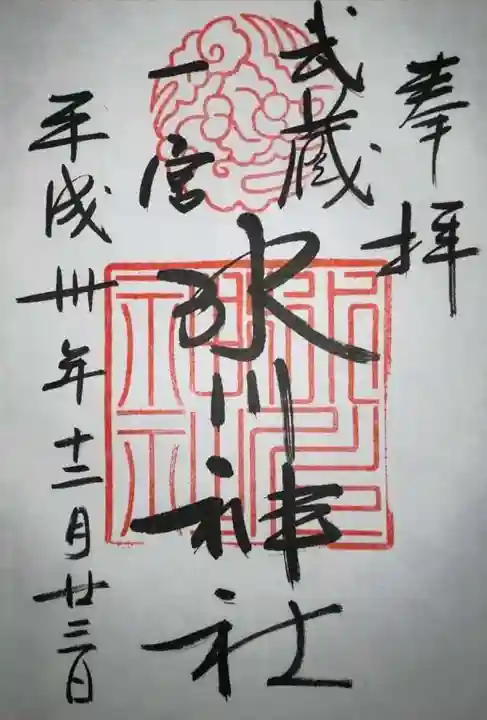 奉拝
武蔵
一宮
氷川神社
平成卅年十二月廿三日